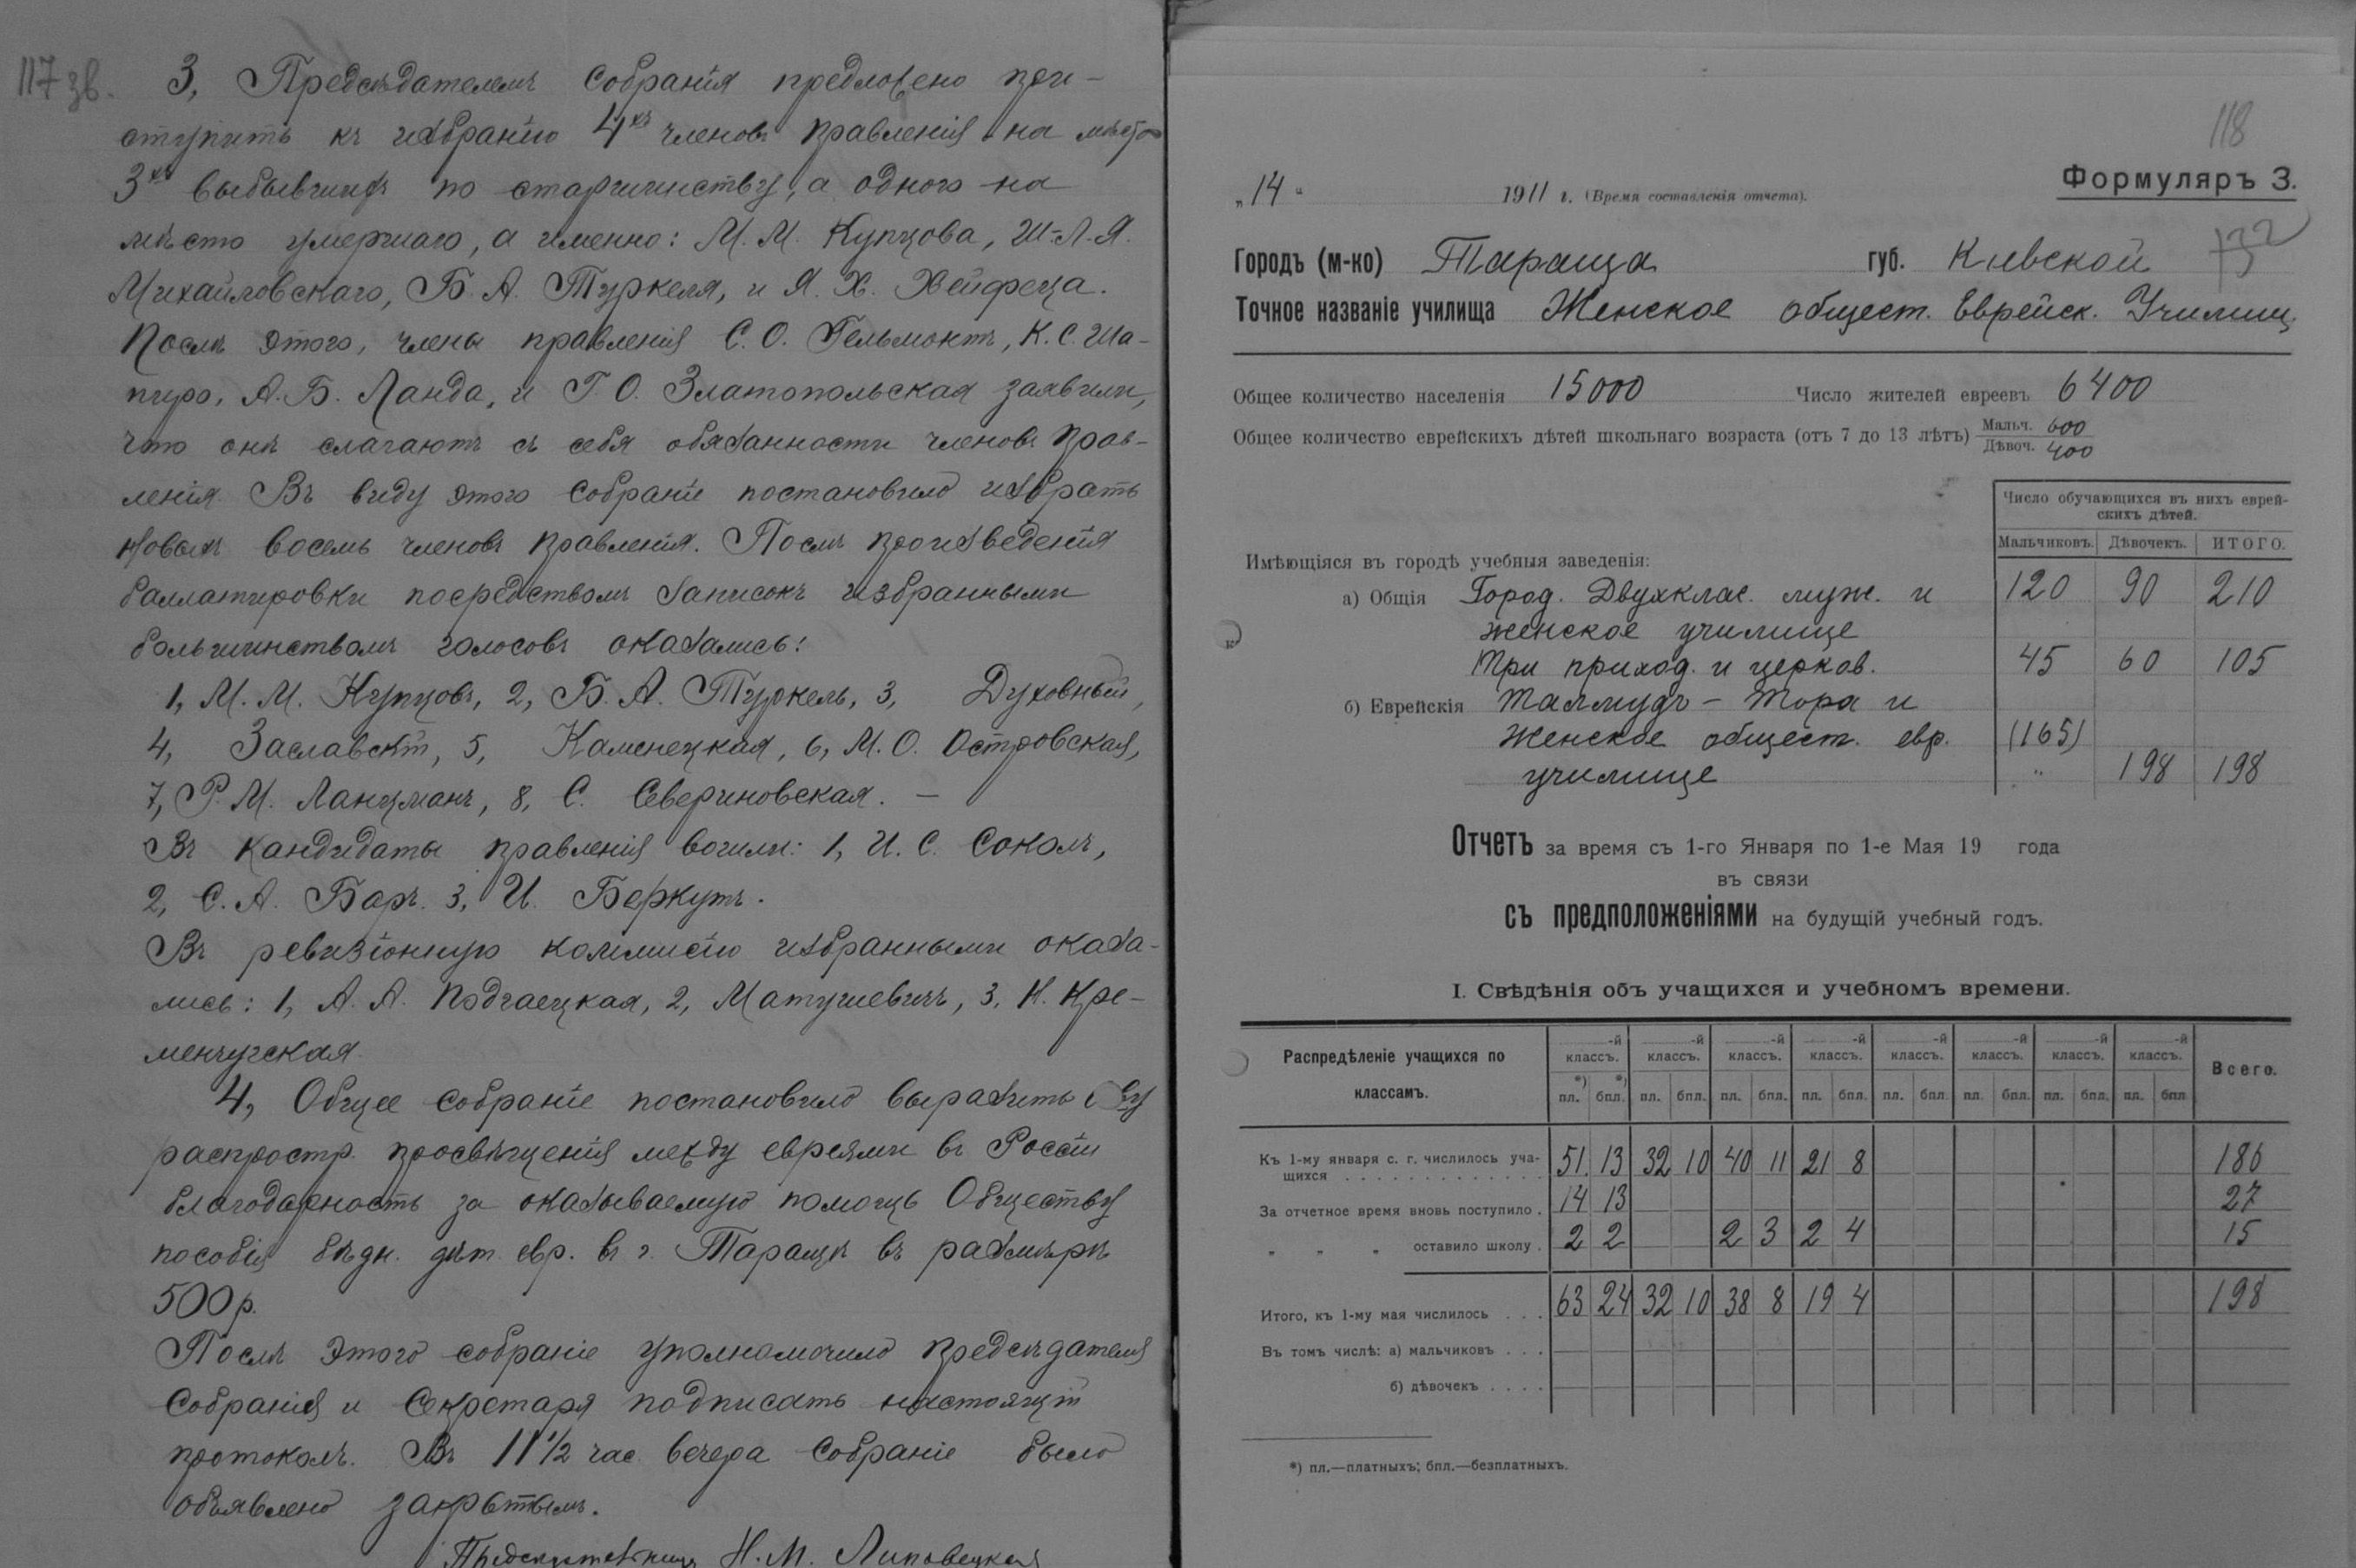 117 зв.
3, Предсѣдателемъ Собранія предложено при-
ступить къ избранію 4хъ членовъ правленія на мѣсто
3хъ выбывшихъ по старшинству, а одного на
мѣсто умершаго, а именно: М. М. Купцова, Ш.-Л. Я.
Михайловскаго, Б. А. Туркеля, и Я. Х. Хейфеца.
Послѣ этого, члены правленія С. О. Гельмонтъ, К. С. Ша-
пиро, А. Б. Ланда, и Г. О. Златопольская заявили,
что онѣ слагаютъ съ себя обязанности членовъ прав-
ленія. Въ виду этого Собраніе постановило избрать
новыхъ восемь членовъ правленія. Послѣ произведенія
баллатировки посредствомъ записокъ избранными
большинствомъ голосовъ оказались:
1, М. М. Купцовъ, 2, Б. А. Туркель, 3, Духовный,
4, Заславскій, 5, Каменецкая, 6, М. О. Островская,
7, Р. М. Ланцманъ, 8, С. Севериновская. —
Въ кандидаты правленія вошли: 1, И. С. Соколъ,
2, С. А. Баръ. 3, И. Беркутъ.
Въ ревизіонную коммисію избранными оказа-
лись: 1, А. А. Подгаецкая, 2, Матушевичъ, 3, Н. Кре-
менчугская
4, Общее собраніе постановило выразить О-ву
распростр. просвѣщенія между евреями въ Россіи
благодарность за оказываемую помощь Обществу
пособія бѣдн. дѣт. евр. въ г. Таращѣ въ размѣрѣ
500 р.
Послѣ этого собраніе уполномочило предсѣдателя
Собранія и Секретаря подписать настоящій
протоколъ. Въ 11 1/2 час вечера Собраніе было
объявлено закрытымъ.
Н. М. Липовецкая
118
Формуляръ 3.
„14“ 1911 г. (Время составленія отчета).
132
Городъ (м-ко) Тараща губ. Кіевской
Точное названіе училища Женское общест. Еврейск. Училищ.
Общее количество населенія 15000 Число жителей евреевъ 6400
Общее количество еврейскихъ дѣтей школьнаго возраста (отъ 7 до 13 лѣтъ) Мальч. 600
Дѣвоч. 400
Число обучающихся въ нихъ еврей-
скихъ дѣтей.
Мальчиковъ. Дѣвочекъ. ИТОГО.
Имѣющіяся въ городѣ учебныя заведенія:
а) Общія Город. Двухклас. муж. и 120 90 210
женское училище
Три приход. и церков. 45 60 105
б) Еврейскія Талмудъ-Тора и
Женское общест. евр. (165)
училище " 198 198
Отчетъ за время съ 1-го Января по 1-е Мая 19 года
въ связи
съ предположеніями на будущій учебный годъ.
I. Свѣдѣнія объ учащихся и учебномъ времени.
Распредѣленіе учащихся по
классамъ.
-й -й -й -й -й -й -й -й
классъ. классъ. классъ. классъ. классъ. классъ. классъ. классъ. Всего.
*) *)
пл. бпл. пл. бпл. пл. бпл. пл. бпл. пл. бпл. пл. бпл. пл. бпл. пл. бпл.
Къ 1-му января с. г. числилось уча-
щихся . . . . . . . . . . . . . 51 13 32 10 40 11 21 8 186
За отчетное время вновь поступило . 14 13 27
" " " оставило школу . 2 2 2 3 2 4 15
Итого, къ 1-му мая числилось . . . 63 24 32 10 38 8 19 4 198
Въ томъ числѣ: а) мальчиковъ . . .
б) дѣвочекъ . . . .
*) пл.—платныхъ; бпл.—безплатныхъ.